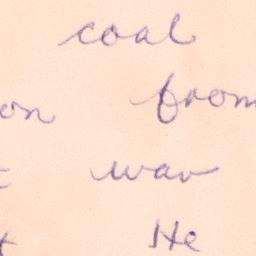 coal
on from
war
He